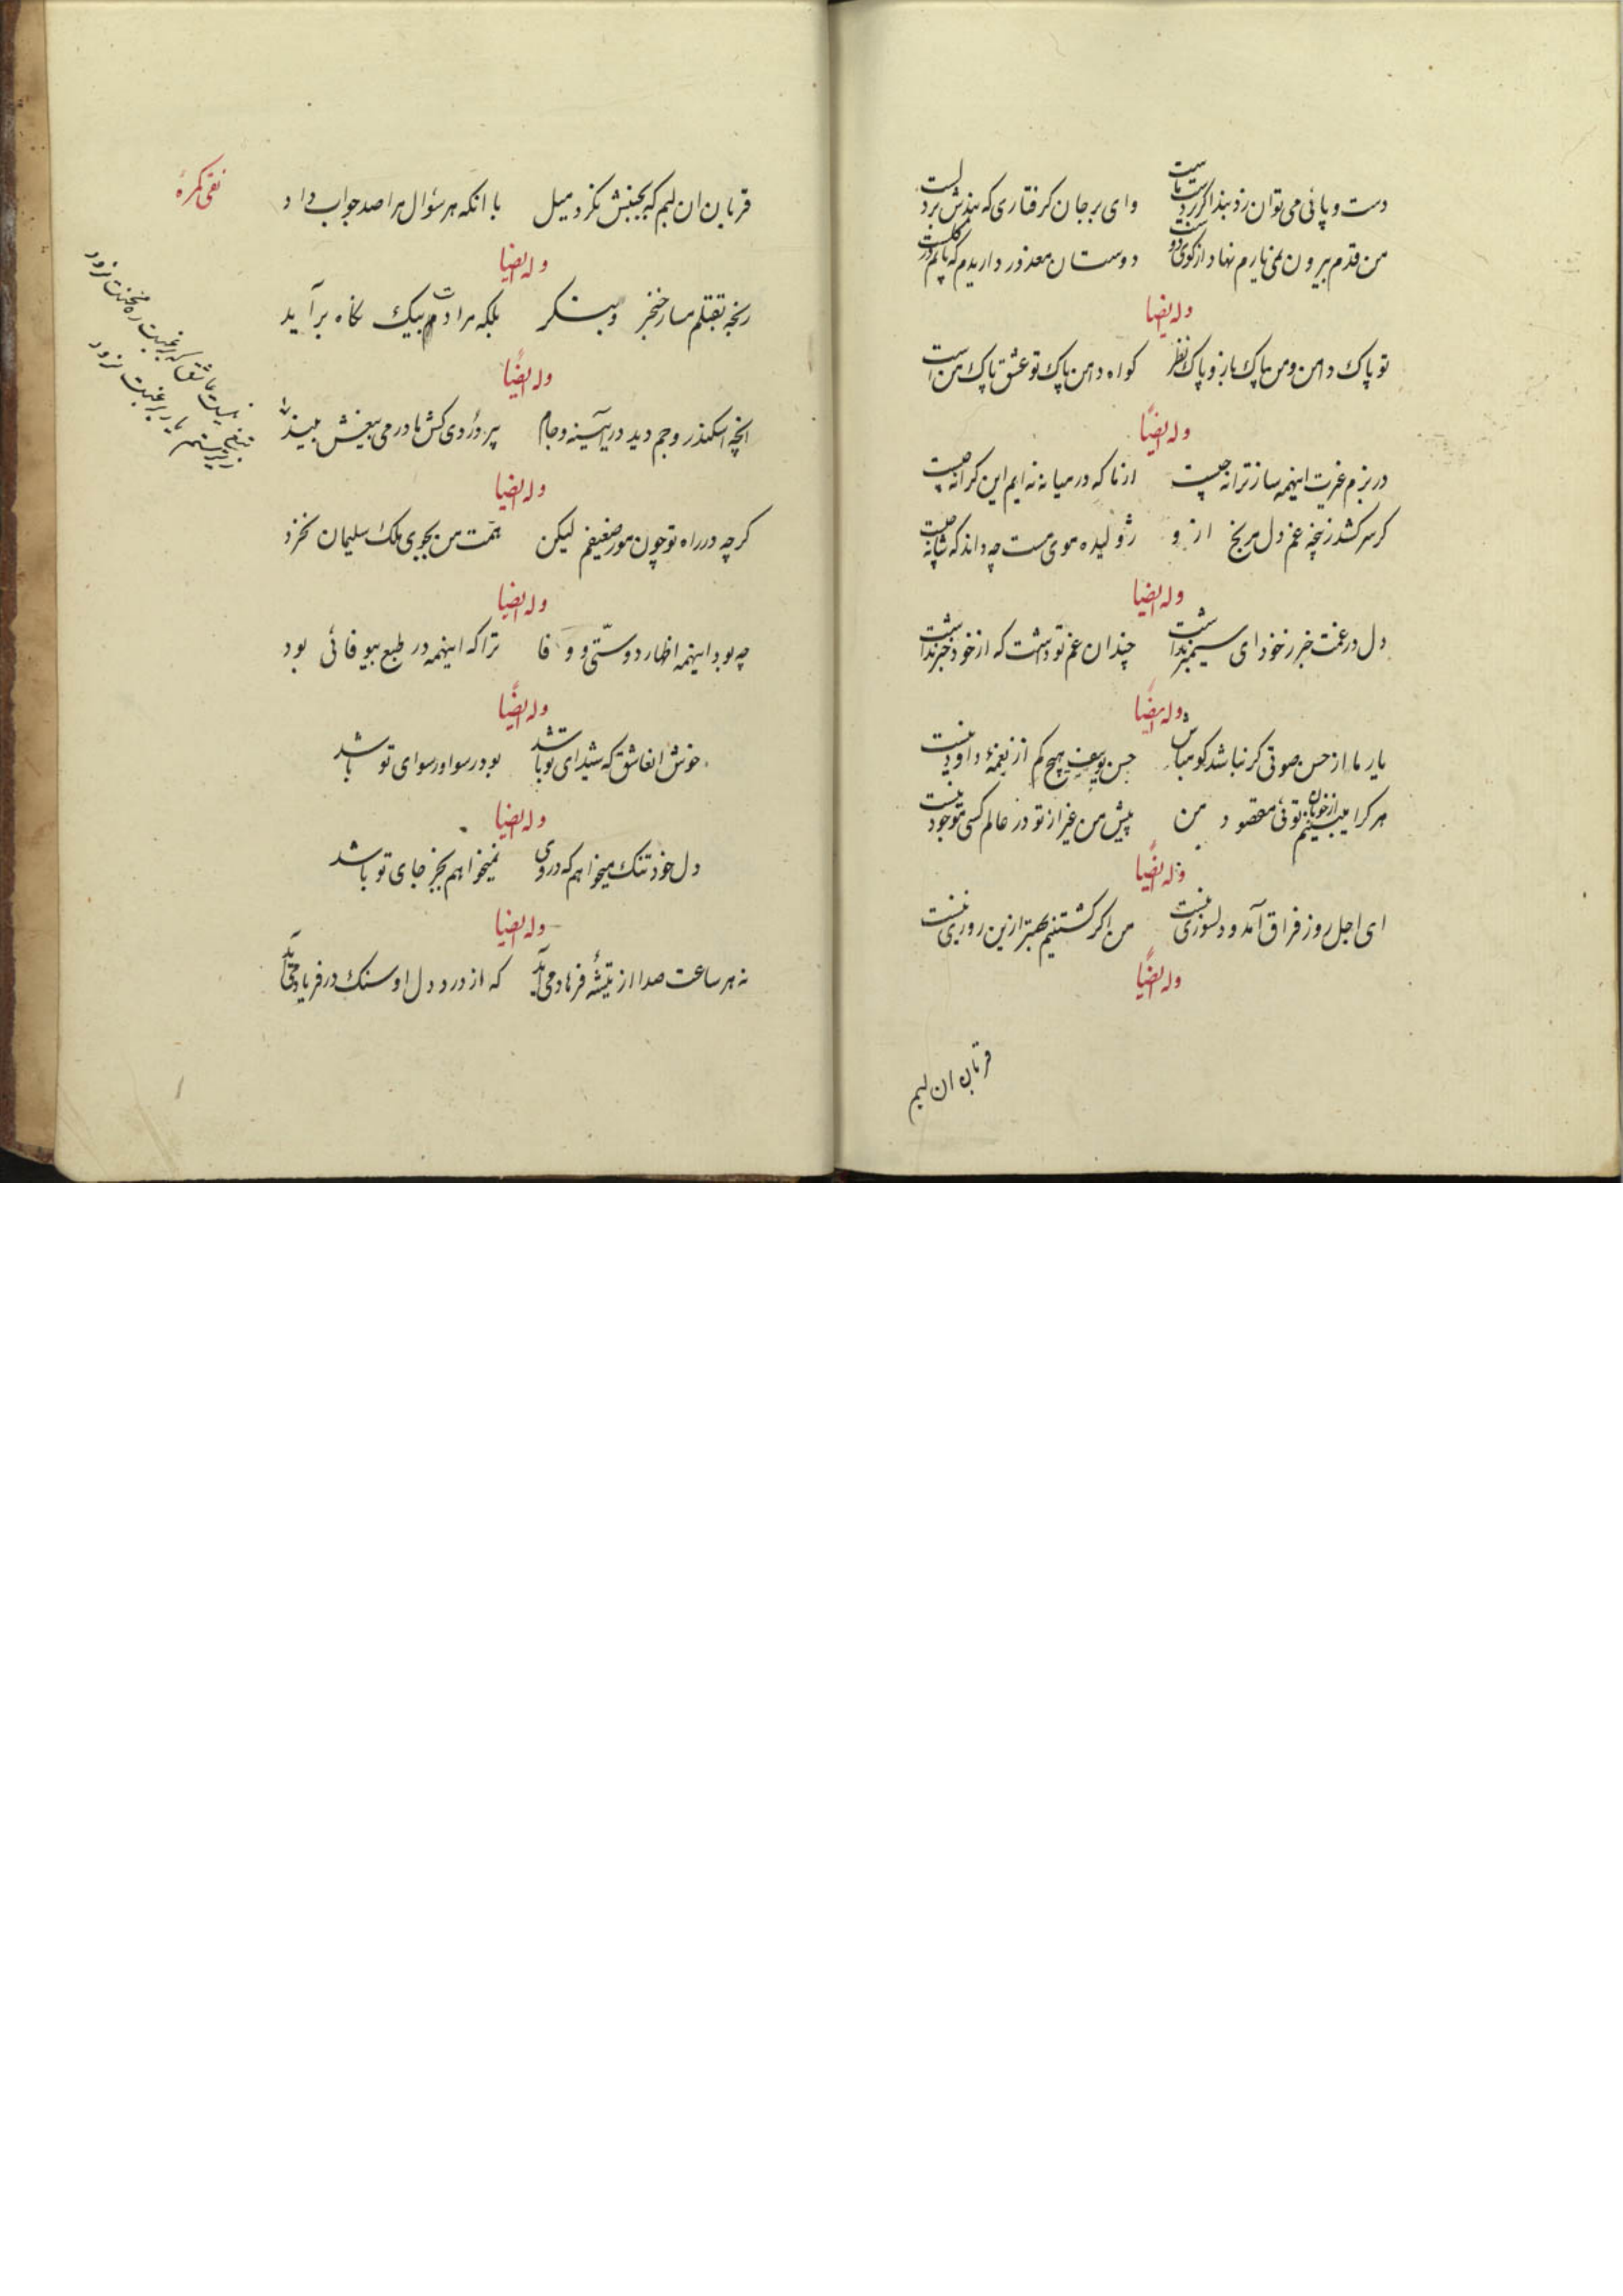 دست و پائی می توان زد بند اگر بر دست و پاست وای بر جان گرفتاری که بندش بر دلست
من قدم بیرون نمی یارم نهاد از کوی دوست دوستان معذور داریدم که پایم در گلست
وله ایضا
تو پاک دامن و من پاک باز و پاک نظر گواه دامن پاک تو عشق پاک من است
وله ایضاً
در بزم غیرت اینهمه ساز ترانه چیست از ما که در میانه نه ایم این کرانه چیست
گر سر کشد ز پنجه غم دل مرنج از و ژولیده موی مست چه داند که شانه چیست
وله ایضا
دل در غمت خبر ز خود ای سیمبر نداشت چندان غم تو داشت که از خود خبر نداشت
وله ایضاً
یار ما را از حسن صوتی گر نباشد گو مباش حسن یوسف هیچ کم از نغمهٔ داود نیست
هر کرا میبینم از خوبان توئی مقصود من پیش من غیر از تو در عالم کسی موجود نیست
وله ایضاً
ای اجل روز فراق آمد و دلسوزی نیست من اگر کشتنیم بهتر ازین روزی نیست
وله ایضاً
قربان ان لبم
قربان ان لبم که بجنبش نکرد میل با انکه هر سؤال مرا صد جواب داد
نقی کمرهٔ
وله ایضا
رنجه بقتلم مساز خنجر و بنگر بلکه مرادت بیک نگاه برآید
وله ایضاً
انچه اسکندر و جم دید در آیینه و جام پیر دُردی کش ما در می بیغش بیند
وله ایضا
گرچه در راه تو چون مور ضعیفم لیکن همت من بجوی ملک سلیمان نخرد
وله ایضا
چه بود اینهمه اظهار دوستّی و وفا ترا که اینهمه در طبع بیوفائی بود
وله ایضاً
خوش انعاشق که شیدای تو باشد بود رسوا و رسوای تو باشد
وله ایضا
دل خود تنک میخواهم که در وی نمیخواهم بجز جای تو باشد
وله ایضا
نه هر ساعت صدا از تیشهٔ فرهاد می آید که از درد دل او سنک در فریاد می آید